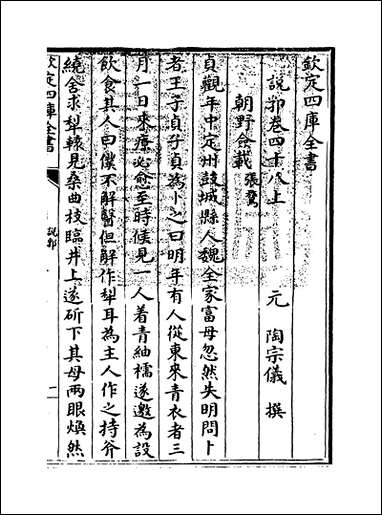 欽定四庫全書
說郛卷四十八上
元 陶宗儀 撰
朝野僉載 張鷟
貞觀年中定州鼓城縣人魏全家富母忽然失明問卜
者王子貞子貞為卜之曰明年有人從東來青衣者三
月一日來療必愈至時候見一人着青紬襦遂邀為設
飲食其人曰僕不解醫但解作犁耳為主人作之持斧
繞舍求犁轅見桑曲枝臨井上遂斫下其母兩眼煥然
欽定四庫全書
說郛